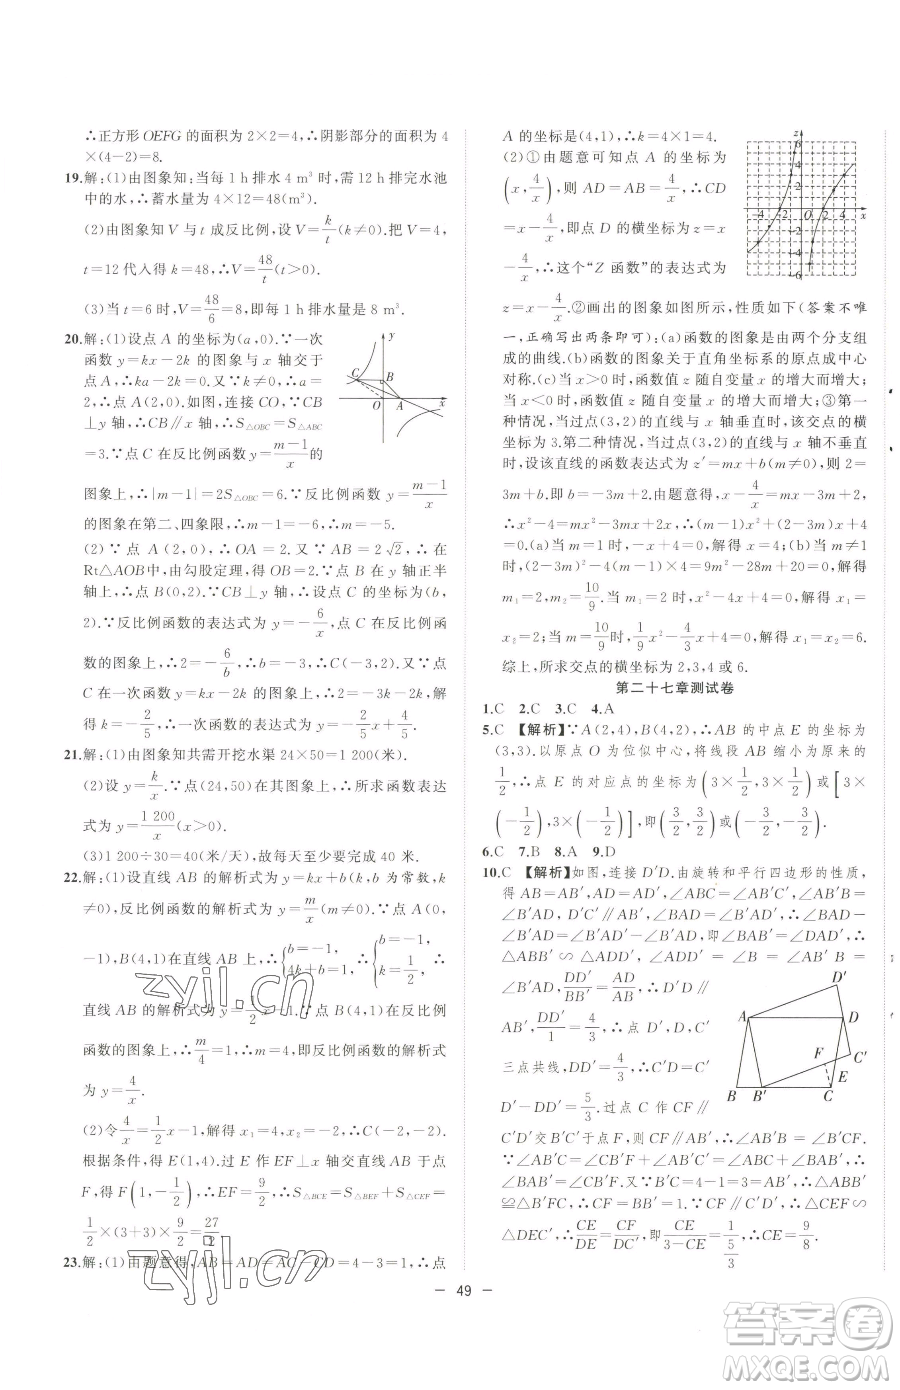 ∴正方形 OEFG 的面积为 2×2=4,∴阴影部分的面积为 4
×(4-2)=8.
19.解:(1)由图象知:当每 1 h 排水 4 m³ 时,需 12 h 排完水池
中的水,∴蓄水量为 4×12=48(m³).
(2)由图象知 V 与 t 成反比例,设 V=k/t(k≠0).把 V=4,
t=12 代入得 k=48,∴V=48/t(t>0).
(3)当 t=6 时,V=48/6=8,即每 1 h 排水量是 8 m³.
20.解:(1)设点 A 的坐标为(a,0).∵一次
函数 y=kx-2k 的图象与 x 轴交于
点 A,∴ka-2k=0.又∵k≠0,∴a=
2,∴点 A(2,0).如图,连接 CO,∵CB
⊥y 轴,∴CB∥x 轴,∴S△OBC=S△ABC
=3.∵点 C 在反比例函数 y=(m-1)/x 的
图象上,∴|m-1|=2S△OBC=6.∵反比例函数 y=(m-1)/x
的图象在第二、四象限,∴m-1=-6,∴m=-5.
(2)∵点 A(2,0),∴OA=2.又∵AB=2√2,∴在
Rt△AOB中,由勾股定理,得 OB=2.∵点 B 在 y 轴正半
轴上,∴点 B(0,2).∵CB⊥y 轴,∴设点 C 的坐标为(b,
2).∵反比例函数的表达式为 y=-6/x,点 C 在反比例函
数的图象上,∴2=-6/b,∴b=-3,∴点 C(-3,2).∵点
C 在一次函数 y=kx-2k 的图象上,∴2=-3k-2k,解
得 k=-2/5,∴一次函数的表达式为 y=-2/5x+4/5.
21.解:(1)由图象知共需开挖水渠 24×50=1 200(米).
(2)设 y=k/x.∵点(24,50)在其图象上,∴所求函数表达
式为 y=1 200/x(x>0).
(3)1 200÷30=40(米/天),故每天至少要完成 40 米.
22.解:(1)设直线 AB 的解析式为 y=kx+b(k,b 为常数,k
≠0),反比例函数的解析式为 y=m/x(m≠0).∵点 A(0,
-1),B(4,1)在直线 AB 上,∴{b=-1, 4k+b=1, ∴{b=-1, k=1/2, ∴
直线 AB 的解析式为 y=1/2x-1.∵点 B(4,1)在反比例
函数的图象上,∴m/4=1,∴m=4,即反比例函数的解析式
为 y=4/x.
(2)令4/x=1/2x-1,解得 x₁=4,x₂=-2,∴点 C(-2,-2).
根据条件,得 E(1,4).过 E 作 EF⊥x 轴交直线 AB 于点
F,得 F(1,-1/2),∴EF=9/2,∴S△BCE=S△BEF+S△CEF=
1/2×(3+3)×9/2=27/2.
23.解:(1)由题意得,AB=AD=AC=AD=4-3=1,∴点
A 的坐标是(4,1),∴k=4×1=4.
(2)①由题意可知点 A 的坐标为
(x,4/x),则 AD=AB=4/x,∴CD=x
-4/x,∴这个“Z 函数”的表达式为
z=x-4/x.②画出的图象如图所示,性质如下(答案不唯
一,正确写出两条即可):(a)函数的图象是由两个分支组
成的曲线.(b)函数的图象关于直角坐标系的原点成中心
对称.(c)当 x>0 时,函数值 z 随自变量 x 的增大而增大;
当 x<0 时,函数值 z 随自变量 x 的增大而增大;③第一
种情况,当过点(3,2)的直线与 x 轴垂直时,该交点的横
坐标为 3.第二种情况,当过点(3,2)的直线与 x 轴不垂直
时,设该直线的函数表达式为 z′=mx+b(m≠0),则 2=
3m+b.即 b=-3m+2,∴x-4/x=mx-3m+2,
∴x²-4=mx²-3mx+2x,∴(m-1)x²-(3m-2)x+4
=0.(a)当 m=1 时,-x+4=0,解得 x=4;(b)当 m≠1
时,(2-3m)²-4(m-1)×4=9m²-28m+20=0,解得
m₁=2,m₂=10/9.当 m=2 时,x²-4x+4=0,解得 x₁=
x₂=2;当 m=10/9时,x²-12x+36=0,解得 x₁=x₂=6.
综上,所求交点的横坐标为 2,3,4 或 6.
第二十七章测试卷
1.C 2.C 3.C 4.A
5.C 【解析】∵A(2,4),B(4,2),∴AB 的中点 E 的坐标为
(3,3).以原点 O 为位似中心,将线段 AB 缩小为原来的
1/2,∴点 E 的对应点的坐标为(3×1/2,3×1/2)或[3×
(-1/2),3×(-1/2)],即(3/2,3/2)或(-3/2,-3/2).
6.C 7.B 8.A 9.D
10.C 【解析】如图,连接 D′D.由旋转和平行四边形的性质,
得 AB=AB′,AD=AD′,∠ABC=∠AB′C′,∠AB′B=
∠B′AD,D′C′∥AB′,∴∠BAD=∠B′AD′,∴∠BAD-
∠B′AD=∠B′AD′-∠B′AD,即∠BAB′=∠DAD′,∴
△ABB′∽△ADD′,∠ABB′=∠ADD′,∠AB′B=
∠B′AD,∴DD′/BB′=AD/AB,∴C′D′∥
AB′,DD′/1=4/3,∴点 D′,D,C′
三点共线,DD′=4/3,∴C′D=C′
D′-DD′=5/3.过点 C 作 CF∥
C′D′交 B′C′于点 F,则 CF∥AB′,∴∠AB′C′=∠B′FC.
∵∠ABC=∠CB′F+∠AB′C′=∠ABC+∠BAB′,∴
∠BAB′=∠CB′F.又∵B′C=AB=AB′,∴△ABB′
≌△B′FC,∴CF=BB′=1.∵CF∥C′D′,∴△CEF∽
△DEC′,∴CE/DE=CF/DC′,即CE/(3-CE)=1/(5/3),∴CE=9/8.
— 49 —